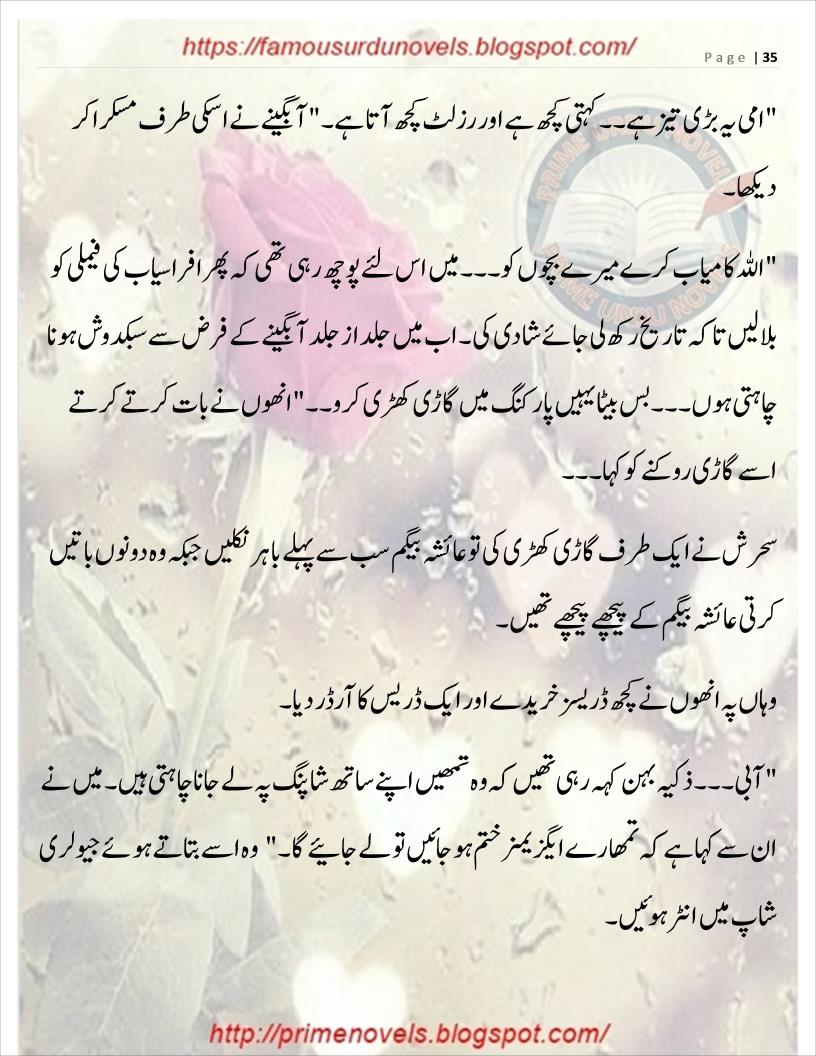 https://famousurdunovels.blogspot.com/
Page | 35
"امی یہ بڑی تیز ہے۔۔ کہتی کچھ ہے اور رزلٹ کچھ آتا ہے۔" آبگینے نے اسکی طرف مسکرا کر
دیکھا۔
"اللہ کامیاب کرے میرے بچوں کو۔۔۔ میں اس لئے پوچھ رہی تھی کہ پھر افراسیاب کی فیملی کو
بلا لیں تاکہ تاریخ رکھ لی جائے شادی کی۔ اب میں جلد از جلد آبگینے کے فرض سے سبکدوش ہونا
چاہتی ہوں۔۔۔ بس بیٹا یہیں پارکنگ میں گاڑی کھڑی کرو۔۔" انھوں نے بات کرتے کرتے
اسے گاڑی روکنے کو کہا۔۔۔
سحرش نے ایک طرف گاڑی کھڑی کی تو عائشہ بیگم سب سے پہلے باہر نکلیں جبکہ وہ دونوں باتیں
کرتی عائشہ بیگم کے پیچھے پیچھے تھیں۔
وہاں پہ انھوں نے کچھ ڈریسز خریدے اور ایک ڈریس کا آرڈر دیا۔
"آبی۔۔۔ ذکیہ بہن کہہ رہی تھیں کہ وہ تمھیں اپنے ساتھ شاپنگ پہ لے جانا چاہتی ہیں۔ میں نے
ان سے کہا ہے کہ تمھارے ایگزیمنز ختم ہو جائیں تو لے جایئے گا۔" وہ اسے بتاتے ہوئے جیولری
شاپ میں انٹر ہوئیں۔
PRIME URDU NOVELS
PRIME URDU NOVELS
http://primenovels.blogspot.com/